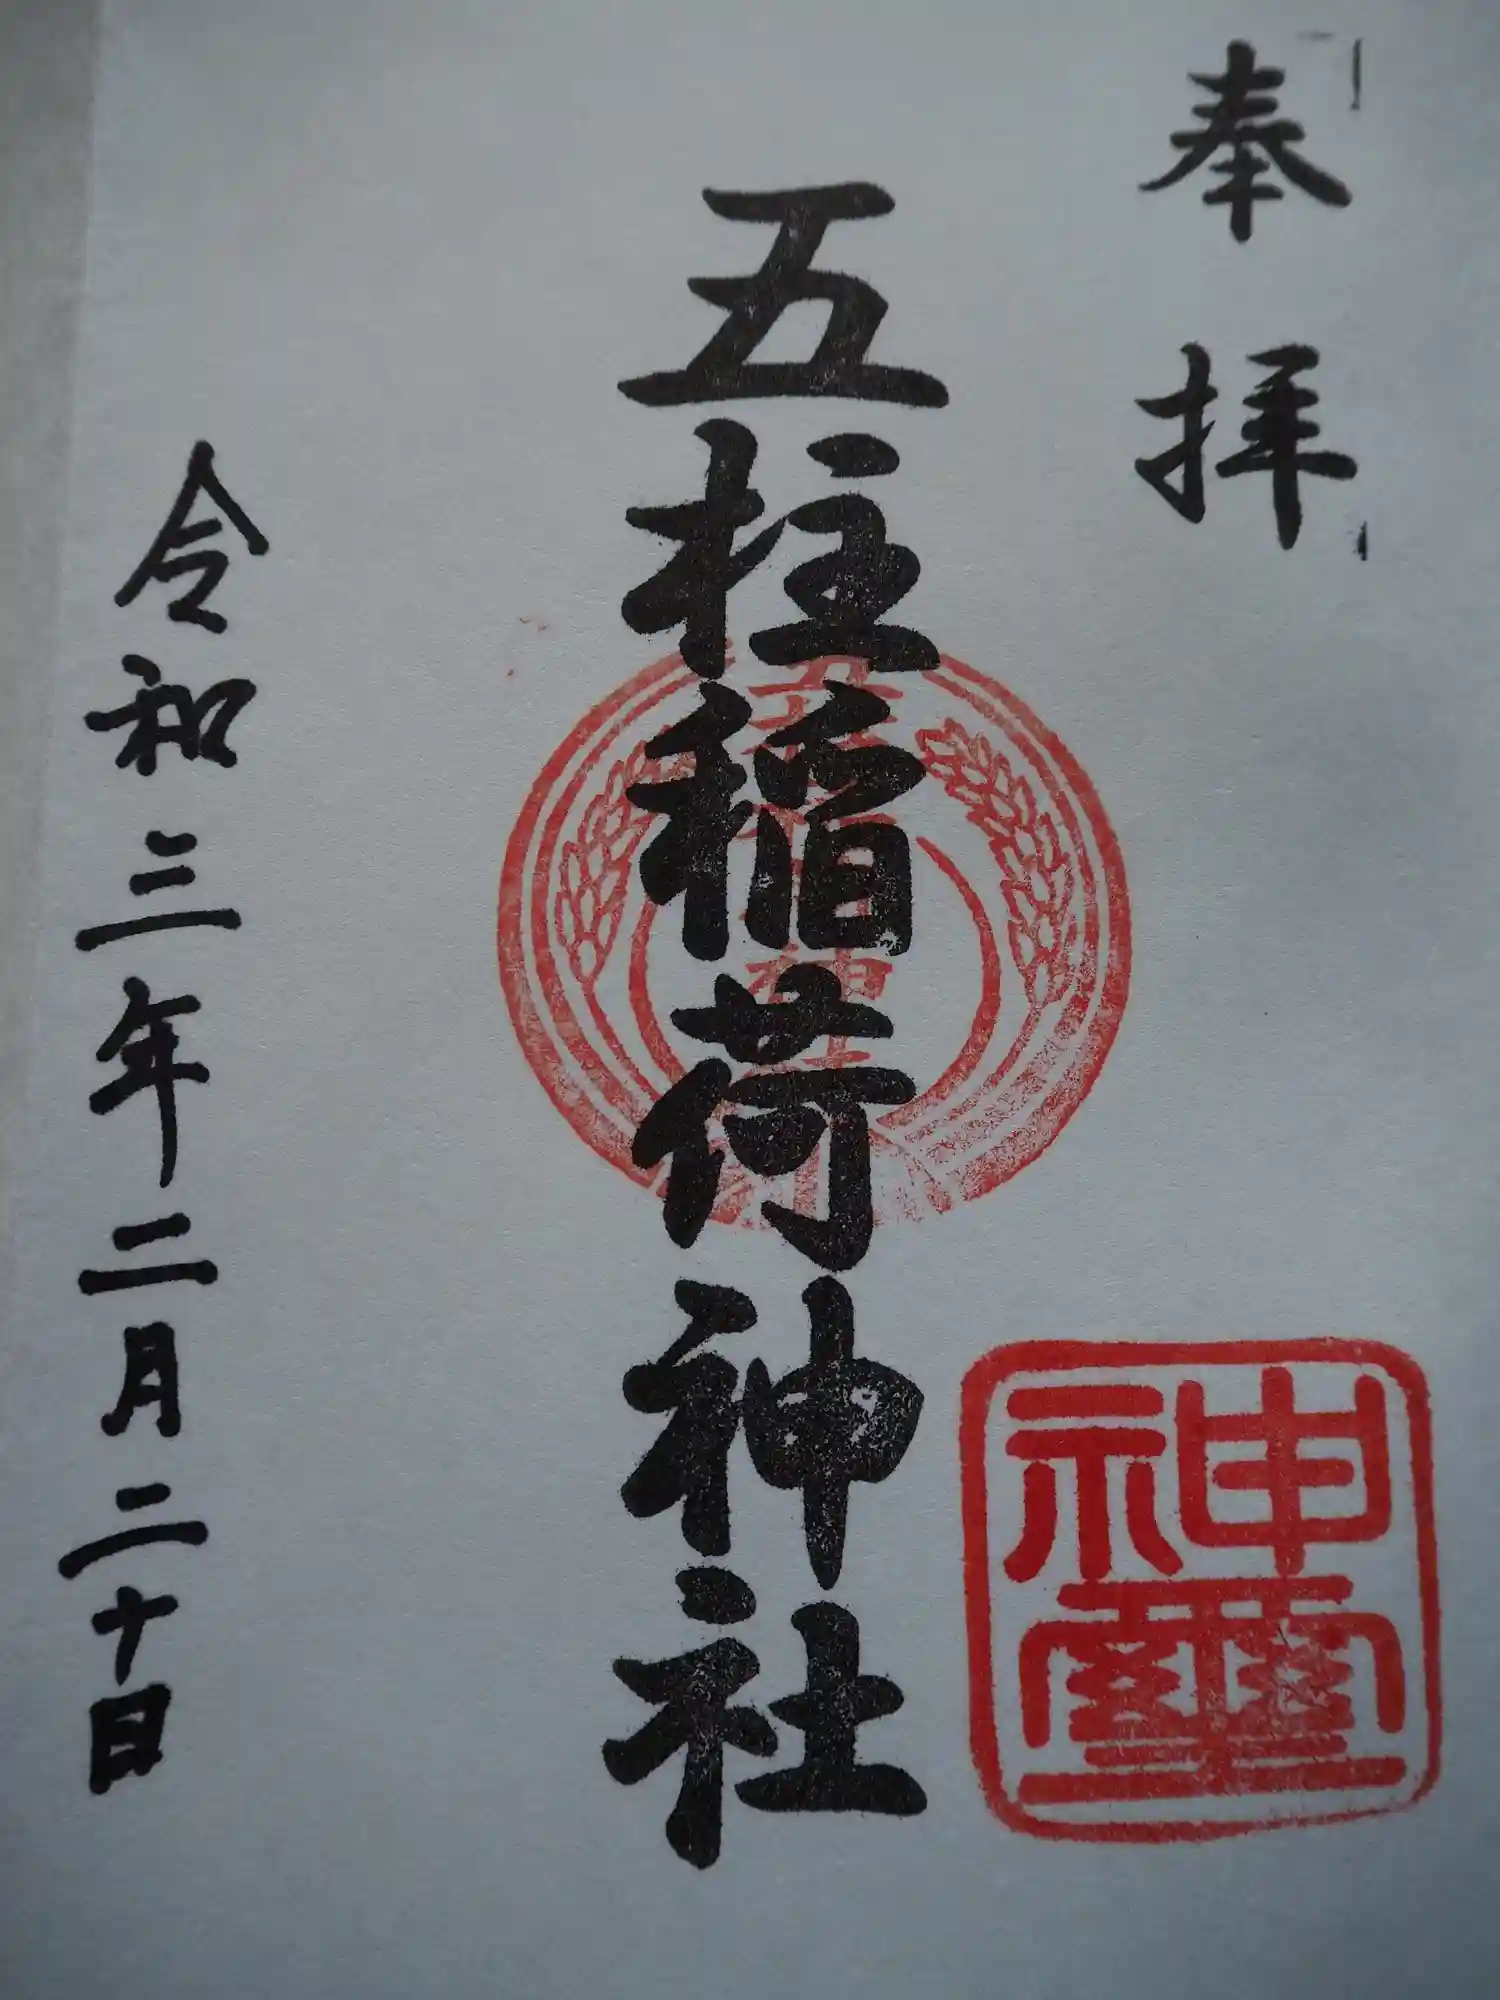 奉拝
五柱稲荷神社
神璽
令和三年二月二十日